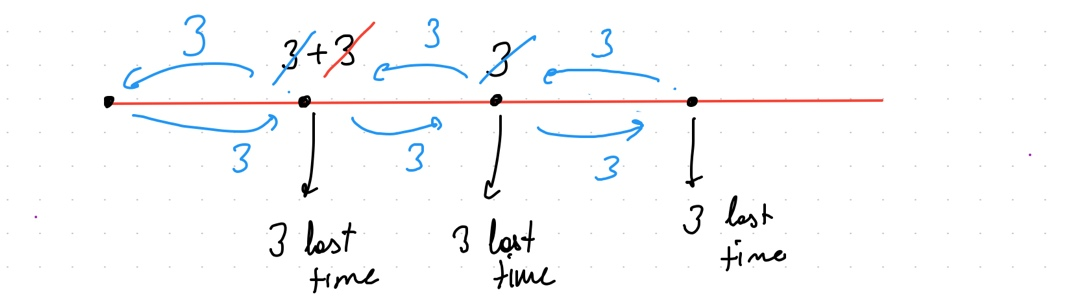 3 3+3 3 3 3
3 3 3
3 last
time
3 last
time
3 last
time